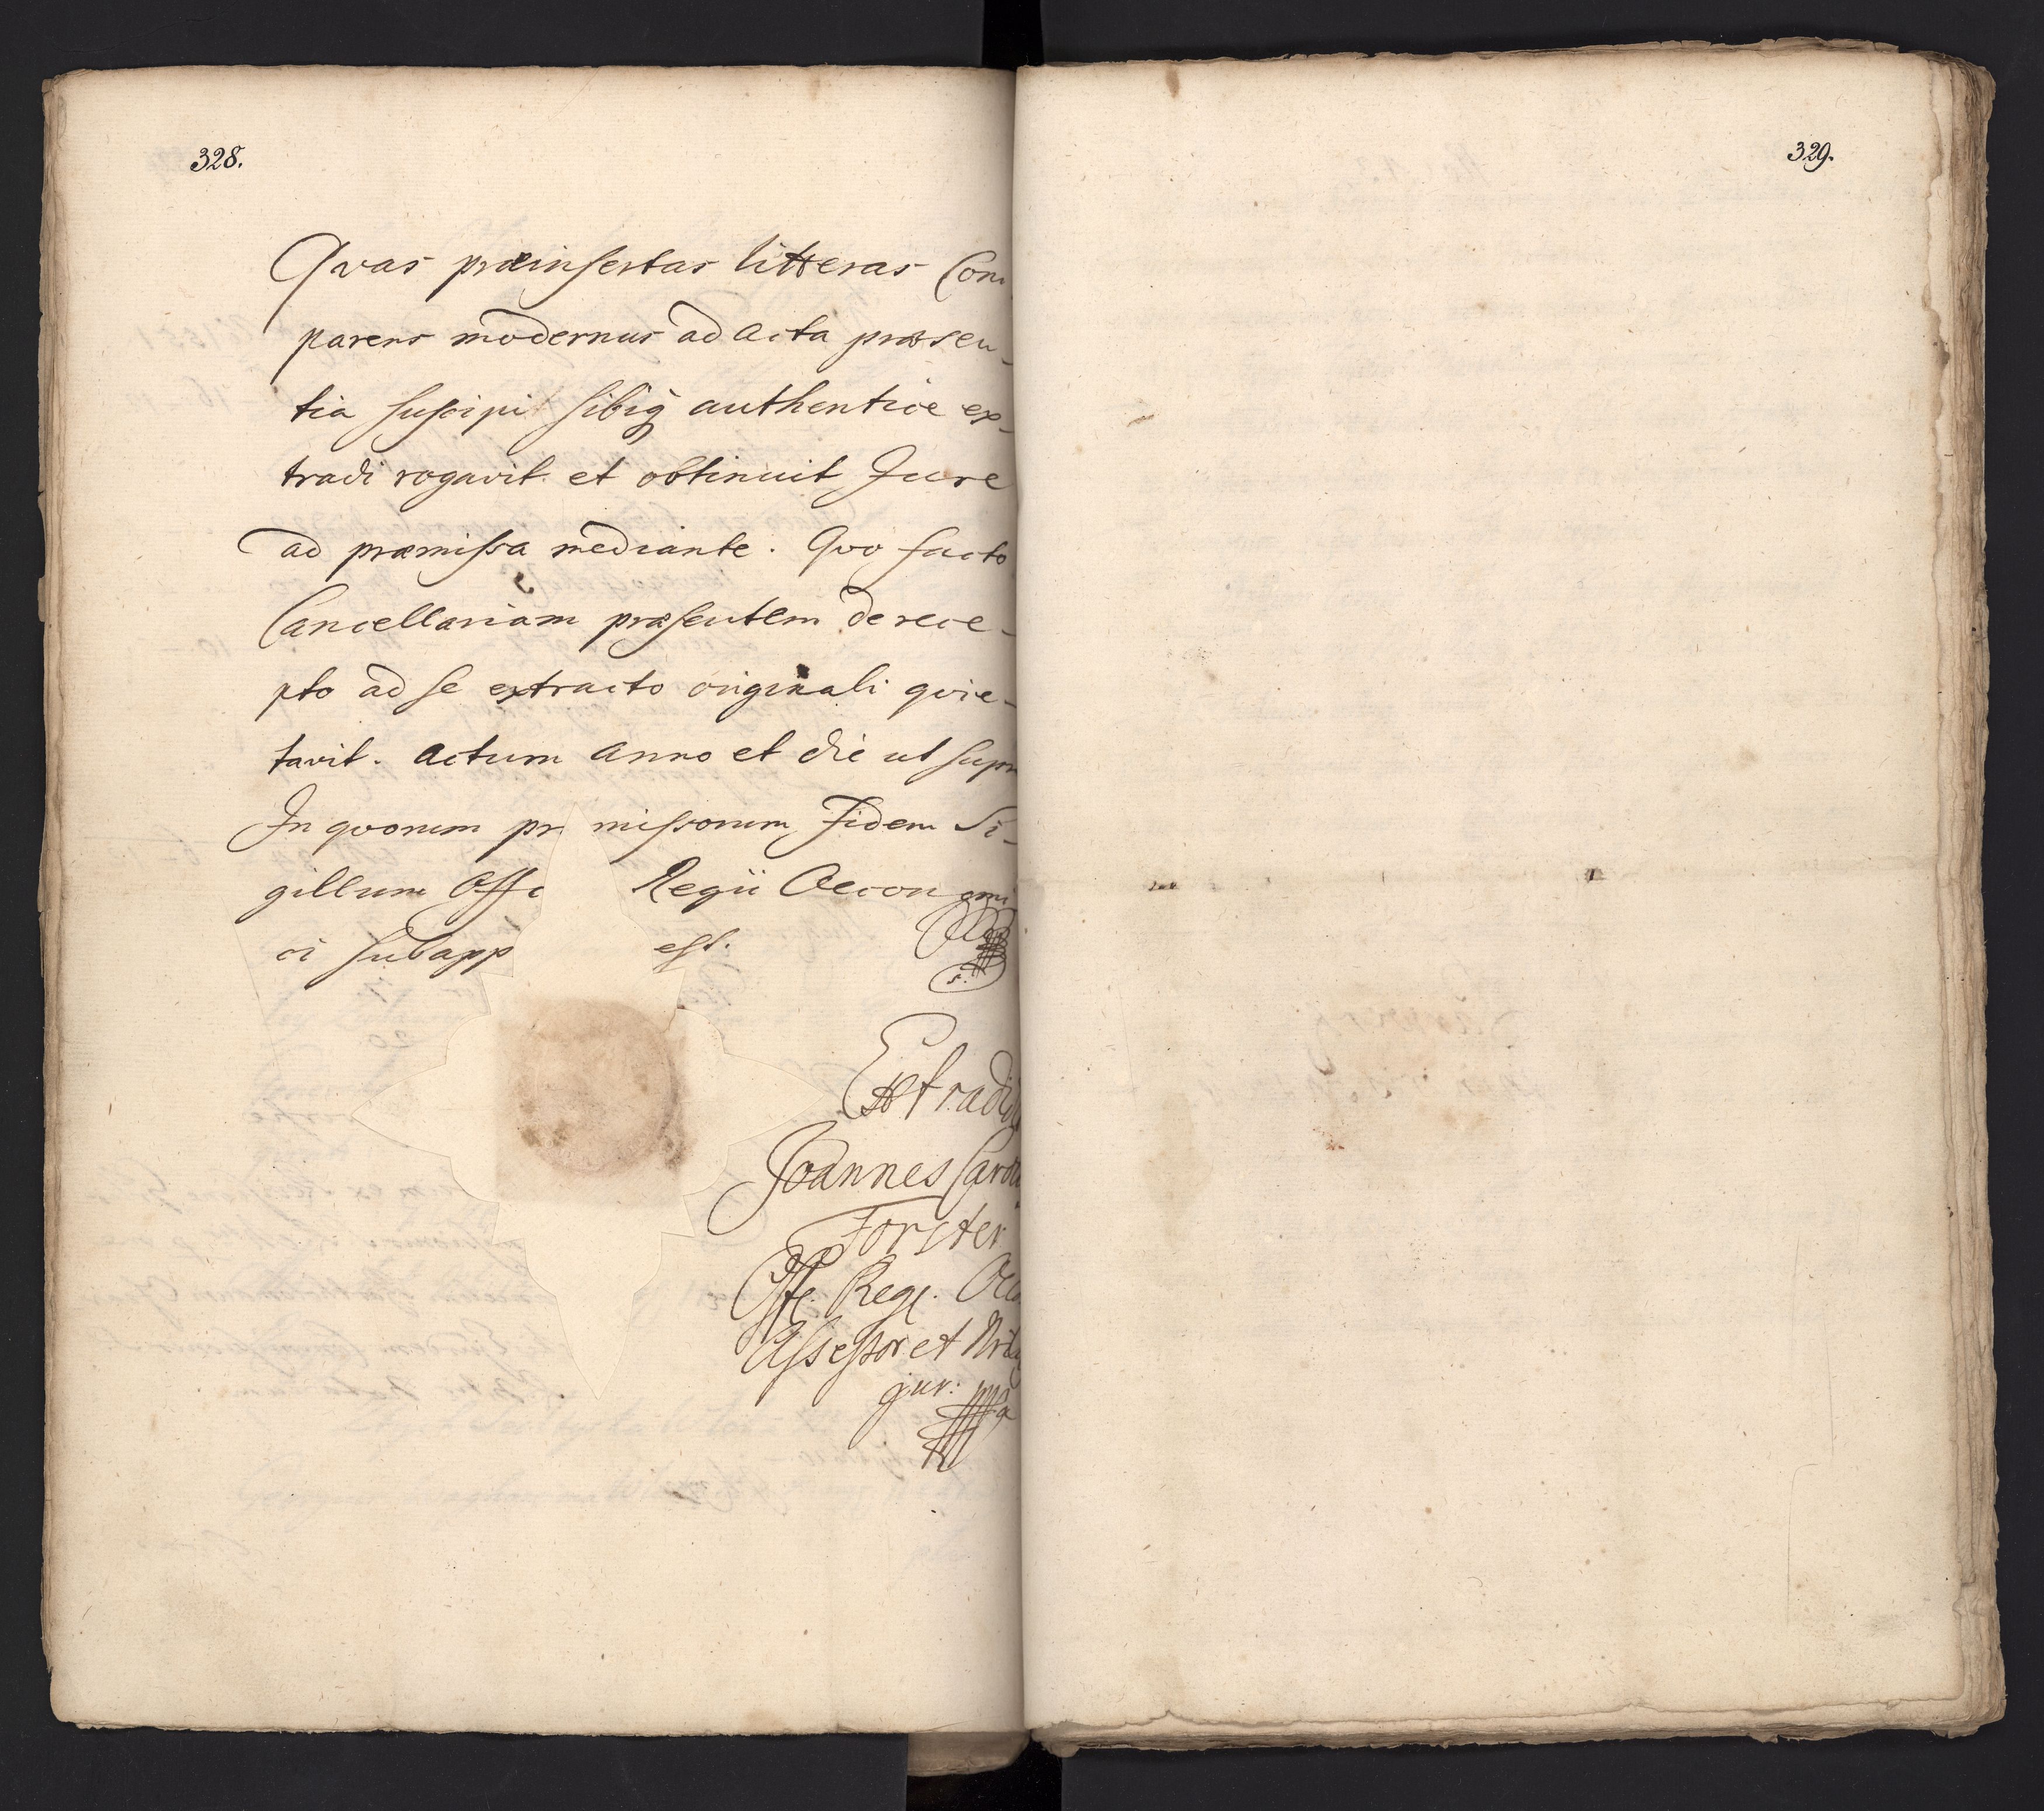 328.
Qvas præinsertas litteras Com
parens modernus ad acta præsen-
tia suscipi sibiq authentice ex-
tradi rogavit et obtinuit Jure
ad præmissa mediante. Qvo facto
Cancellariam præsentem de rece-
pto ad se extracto originali qvie-
tavit. Actum Anno et die ut supr
In qvorum pr missorum Fidem Si-
gillum Offi Regii Oeconomi
ci subapp est.
Extradid
Joannes Caro
Forster
Off. Reg. Oec
Assessor et Nota
jur: mppa
329.